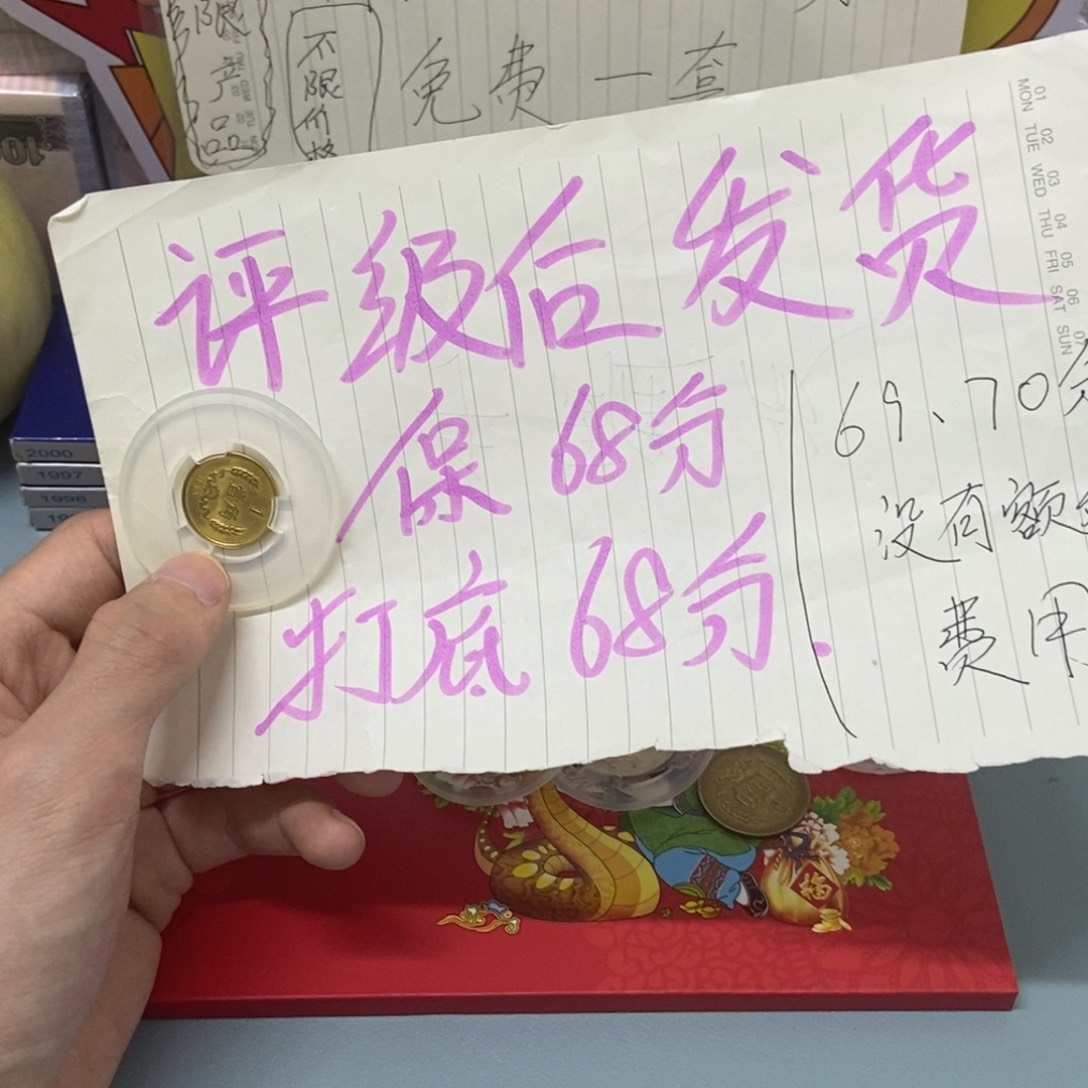 限
产
品
不
限
价
格
免费一套
评级后发货
保68分
打底68分.
69、70分
没有额
费用
01 02 03 04 05 06 07
MON TUE WED THU FRI SAT SUN
2000
1997
1998
100
壹角
福